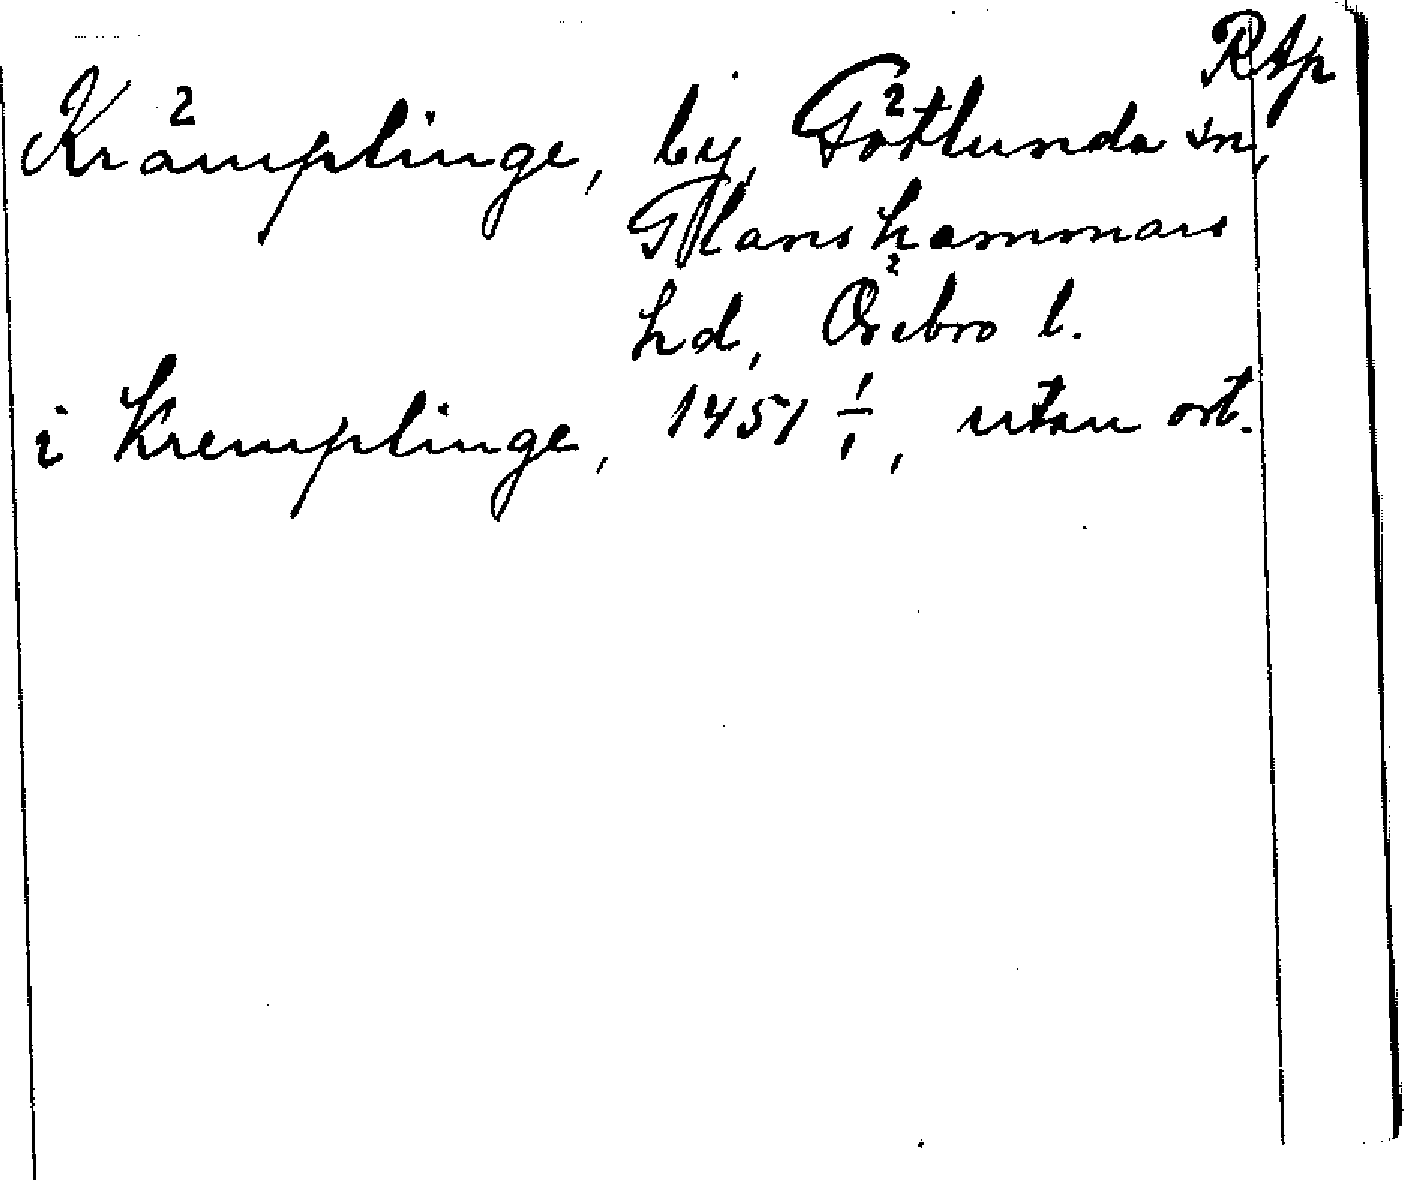 Rtp
Krämplinge, by, Götlunda sn,
Glanshammars
hd, Örebro l.
i Kremplinge, 1451 1/1, utan ort.